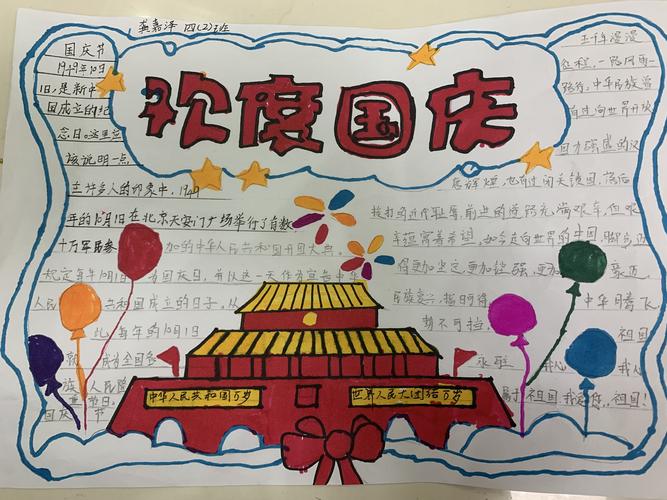 龚嘉泽 四(2)班
欢度国庆
国庆节
1949年10月
1日,是新中
国成立的纪
念日。这里应
该说明一点
在许多人的印象中,1949
年的10月1日在北京天安门广场举行了有数
十万军民参加的中华人民共和国开国大典
规定每年10月1日为国庆日,并以这一天作为宣告中华
人民共和国成立的日子,从
此每年的10月1日
成为全国各
族人民隆
重节日
国庆节
五千年漫漫
红程,一路风雨一
路行,中华民族曾
有过向世界开放
国力强盛的汉
唐辉煌,也有过闭关锁国,落后
挨打的近代耻辱,前进的道路充满艰辛,但艰
辛蕴富着希望,如今走向世界的中国,脚
得更加坚定,更加轻强,更加豪迈,
民族复兴,指日可待,中华腾飞
势不可挡
祖国
永驻我心
属于祖国,我爱您,祖国!
中华人民共和国万岁
世界人民大团结万岁